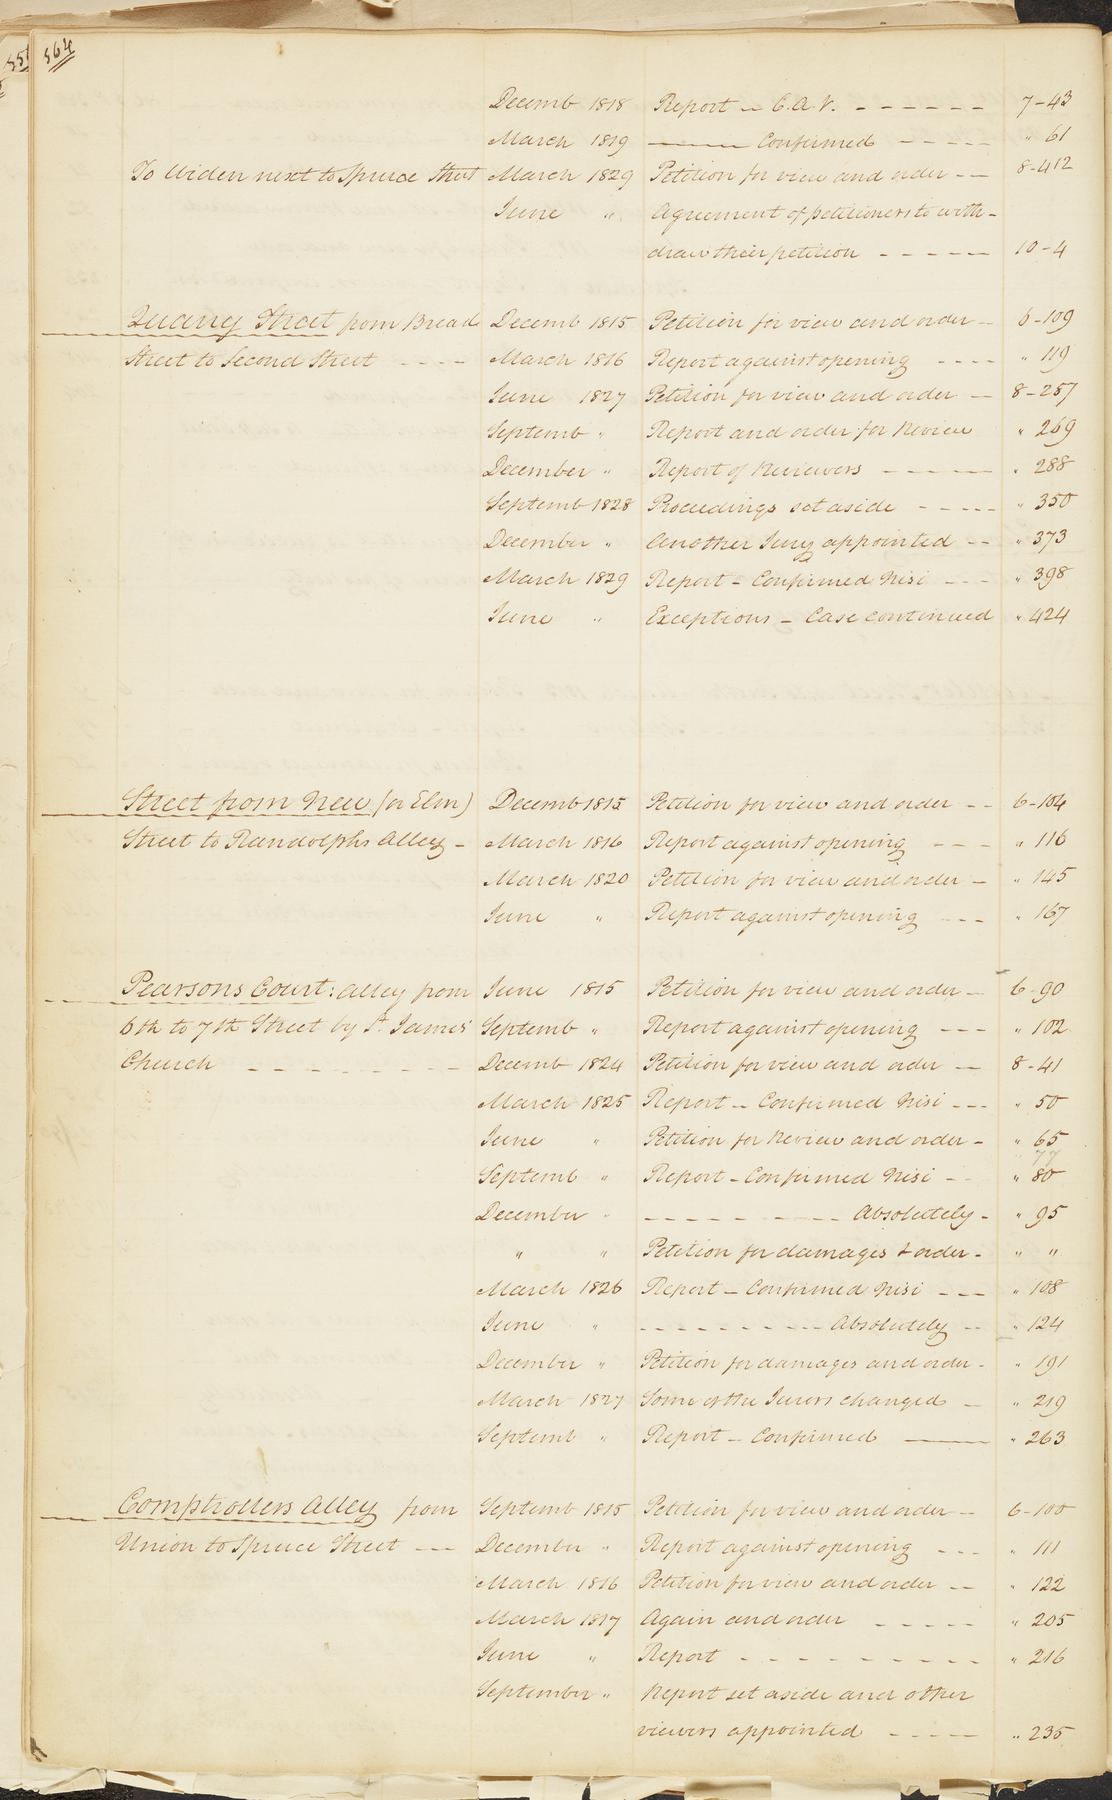 564
Decemb 1818 Report — C.A.V. - - - - - - 7-43
March 1819 ——— Confirmed - - - - - " 61
To Widen next to Spruce Street March 1829 Petition for view and order - - 8-412
June " Agreement of petitioners to with-
draw their petition - - - - - 10-4
Quarry Street from Bread Decemb 1815 Petition for view and order - 6-109
Street to Second Street - - - - March 1816 Report against opening - - - - " 119
June 1827 Petition for view and order - 8-257
Septemb " Report and order for Review " 269
December " Report of Reviewers - - - - " 288
Septemb 1828 Proceedings set aside - - - - - " 350
December " Another Jury appointed - - " 373
March 1829 Report - Confirmed Nisi - - - " 398
June " Exceptions - Case continued " 424
Street from New (or Elm) Decemb 1815 Petition for view and order - - 6-104
Street to Randolphs Alley - March 1816 Report against opening - - - " 116
March 1820 Petition for view and order - " 145
June " Report against opening - - - " 167
Pearsons Court: alley from June 1815 Petition for view and order - 6-90
6th to 7th Street by St. James' Septemb " Report against opening - - - " 102
Church - - - - - - - - - Decemb 1824 Petition for view and order - 8-41
March 1825 Report - Confirmed Nisi - - - " 50
June " Petition for Review and order - " 65
Septemb " Report - Confirmed Nisi - - " 80
December " - - - - - - - - Absolutely - " 95
" " Petition for damages & order - " "
March 1826 Report - Confirmed Nisi - - - " 108
June " - - - - - - - - - Absolutely - - " 124
December " Petition for damages and order - " 191
March 1827 Some of the Jurors changed - " 219
Septemb " Report - Confirmed —— " 263
Comptrollers Alley from Septemb 1815 Petition for view and order - 6-100
Union to Spruce Street - - - December " Report against opening - - - " 111
March 1816 Petition for view and order - - " 122
March 1817 Again and order - - - - - " 205
June " Report - - - - - - - - - - " 216
September " Report set aside and other
viewers appointed - - - - - " 235